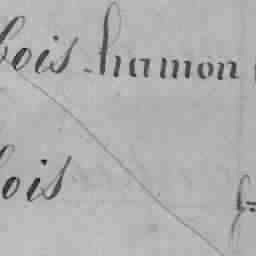 bois hamon
bois